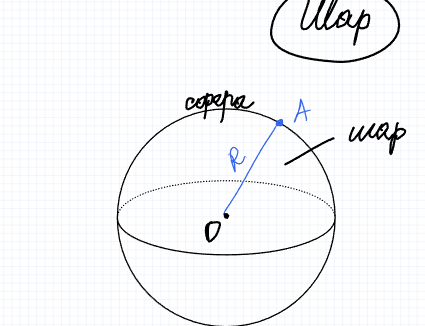 Шар
сфера
A
шар
R
O